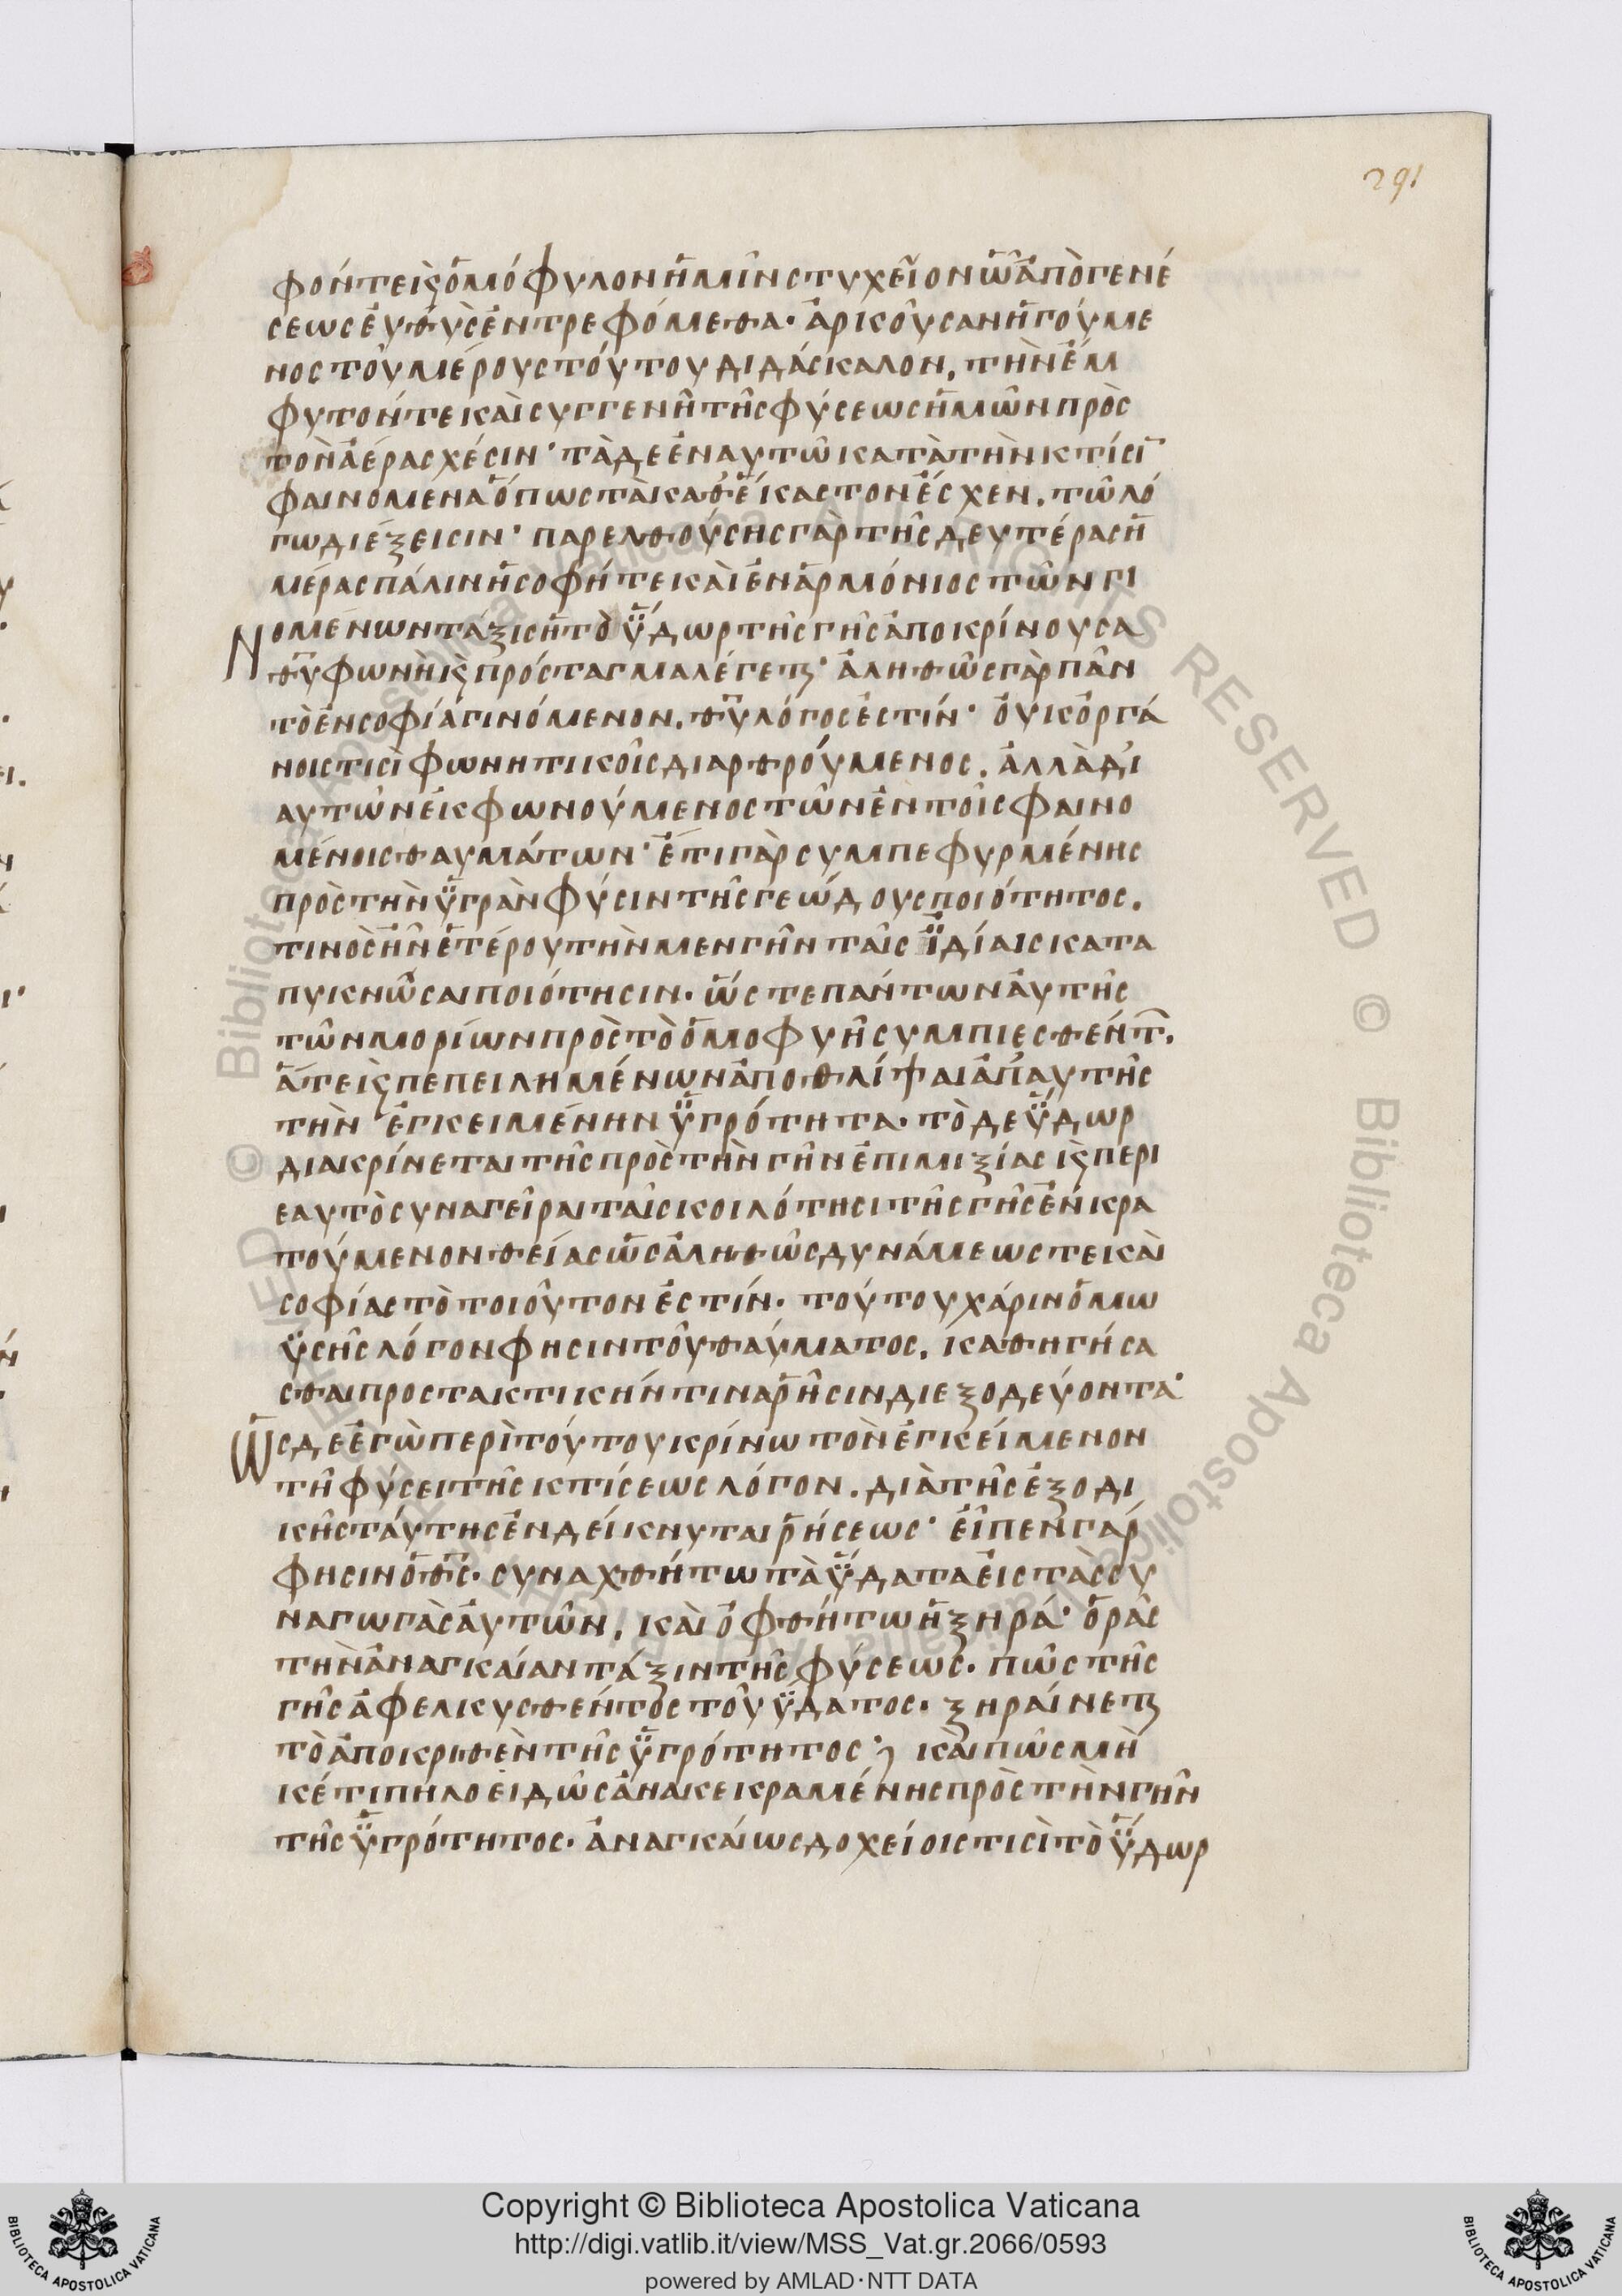 291
φόν τε ϗ ὁμόφυλον ἡμῖν στυχεῖον ὧ ἀπὸ γενέ
σεως ἐυθὺς ἐντρεφόμεθα· ἀρκοῦσαν ἡγούμε
νος τοῦ μέρους τούτου διδάσκαλον, τὴν ἔμ
φυτόν τε καὶ συγγενῆ τῆς φύσεως ἡμῶν πρὸς
τὸν ἀέρα σχέσιν· τὰ δε ἐν αυτῶ κατὰ τὴν κτίσῑ
φαινόμενα ὅπως τὰ καθ' ἕκαστον ἔσχεν. τῶ λό
γω διέξεισιν· παρελθούσης γὰρ τῆς δευτέρας ἡ
μέρας πάλιν ἡ σοφή τε καὶ ἐναρμόνιος τῶν γι
νομένων τάξις ἡ τὸ ὕδωρ τῆς γῆς ἀποκρίνουσα
θῡ φωνὴ ϗ πρόσταγμα λέγετϗ· ἀληθῶς γὰρ πᾶν
τὸ ἐν σοφία γινόμενον. θῡ λόγος ἐστίν· ὀυκ ὀργά
νοις τισὶ φωνητικοῖς διαρθρούμενος. ἀλλὰ δι'
αυτῶν ἐκφωνούμενος τῶν ἐν τοῖς φαινο
μένοις θαυμάτων· ἔτι γὰρ συμπεφυρμένης
πρὸς τὴν ὑγρὰν φύσιν τῆς γεώδους ποιότητος.
τινὸς ἦν ἑτέρου τὴν μεν γῆν ταῖς ἰδίαις κατα
πυκνῶσαι ποιότησιν. ὥστε πάντων ἀυτῆς
τῶν μορίων πρὸς τὸ ὁμοφυῆ συμπιεσθέντ.
ἅτε ϗ πεπειλημένων ἀποθλίψαι ἀπ' αυτῆς
τὴν ἐγκειμένην ὑγρότητα· τὸ δε ὕδωρ
διακρίνεται τῆς πρὸς τὴν γῆν ἐπιμιξίας ϗ περι
εαυτὸ συναγεῖραι ταῖς κοιλότησι τῆς γῆς ἐνκρα
τούμενον θείας ὡς ἀληθῶς δυνάμεως τε καὶ
σοφίας τὸ τοιοῦτον ἐστίν· τούτου χάριν ὁ μω
ϋσῆς λόγον φησιν τοῦ θαύματος. καθηγήσα
σθαι προστακτικήν τινα ῥῆσιν διεξοδεύοντα·
ὡς δε ἐγὼ περὶ τούτου κρίνω τὸν ἐγκείμενον
τῆ φύσει τῆς κτίσεως λόγον. διὰ τῆς ἐξοδι
κῆς ταύτης ἐνδείκνυται ῥήσεως· εἶπεν γάρ
φησιν ὁ θς. συναχθήτω τὰ ὕδατα εἰς τὰς συ
ναγωγὰς ἀυτῶν, καὶ ὀφθήτω ἡ ξηρά· ὁρᾶς
τὴν ἀναγκαίαν τάξιν τῆς φύσεως. πῶς τῆς
γῆς ἀφελκυσθέντος τοῦ ὕδατος. ξηραίνετϗ
τὸ ἀποκριθὲν τῆς ὑγρότητος· καὶ πῶς μὴ
κέτι πηλοειδῶς ἀνακεκραμένης πρὸς τὴν γῆν
τῆς ὑγρότητος. ἀναγκαίως δοχείοις τισὶ τὸ ὕδωρ
Copyright © Biblioteca Apostolica Vaticana
http://digi.vatlib.it/view/MSS_Vat.gr.2066/0593
powered by AMLAD·NTT DATA